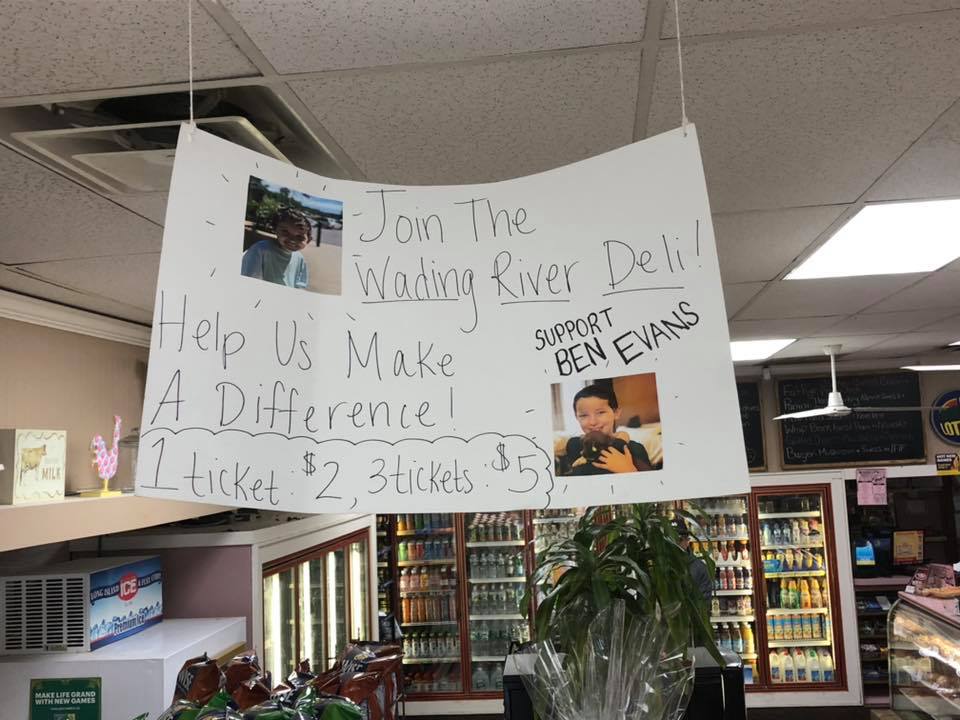 Join The
Wading River Deli!
Help Us Make
A Difference!
SUPPORT
BEN EVANS
1 ticket: $2, 3 tickets: $5
MILK
LONG ISLAND
ICE
Premium Ice
MAKE LIFE GRAND
WITH NEW GAMES